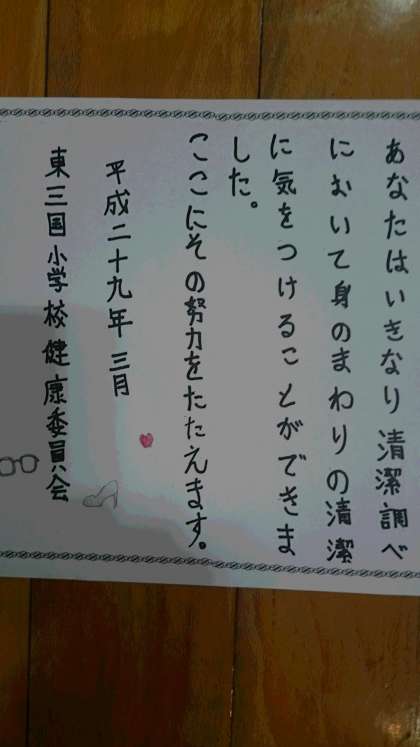 あなたはいきなり清潔調べ
において身のまわりの清潔
に気をつけることができま
した。
ここにその努力をたたえます。
平成二十九年三月
東三国小学校健康委員会